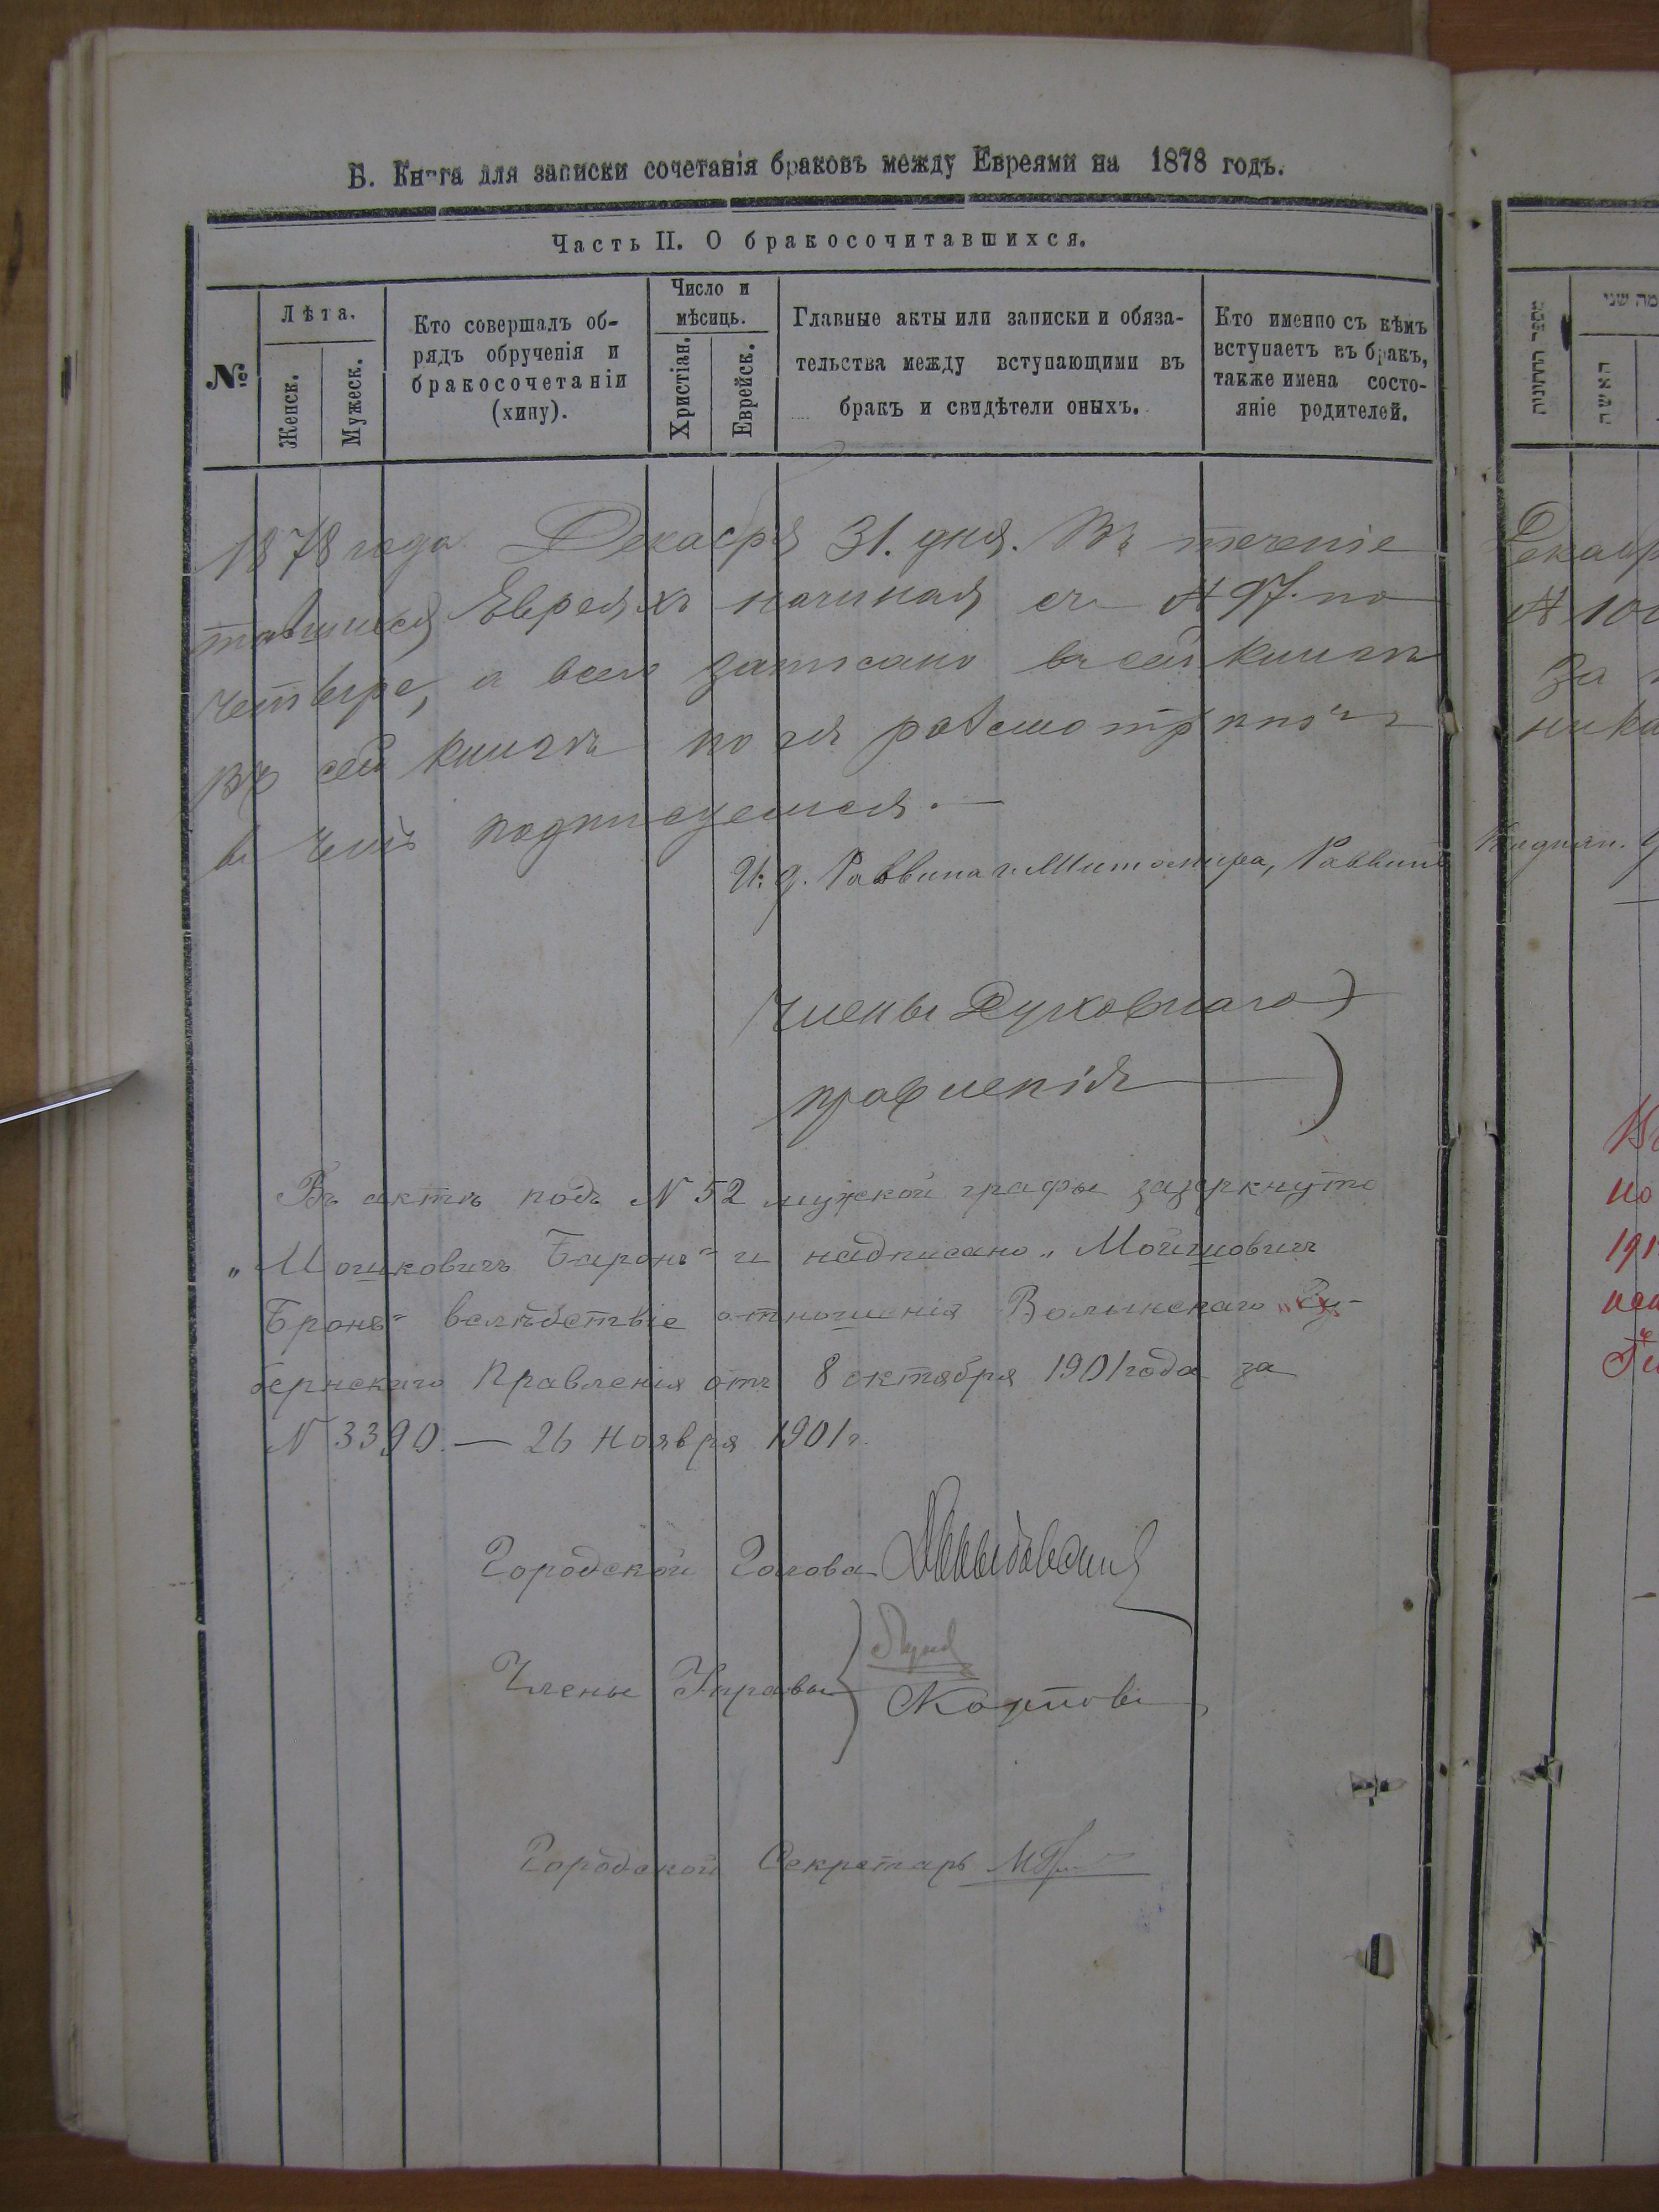 Б. Книга для записки сочетанія браковъ между Евреями на 1878 годъ.
Часть II. О бракосочитавшихся.
№
Лѣта.
Женск.
Мужеск.
Кто совершалъ об-
рядъ обрученія и
бракосочетаніи
(хипу).
Число и
мѣсицъ.
Христіан.
Еврейск.
Главные акты или записки и обяза-
тельства между вступающими въ
бракъ и свидѣтели оныхъ.
Кто именно съ кѣмъ
вступаетъ въ бракъ,
также имена состо-
яніе родителей.
1878 года Декабря 31. дня. Въ теченіе
тавшихся Евреяхъ начиная съ № 97. по
четыре, а всего записано въ сей книгѣ
въ сей книгѣ по
в чемъ подписуемся. —
И. д. Раввина г. Житомира, Раввинъ
Члены Духовнаго )
правленія )
Въ актѣ подъ N 52 мужской графы зачеркнуто
„Мошковичъ Баронъ" и надписано „Мойшовичъ
Бронъ" вслѣдствіе отношенія Волынскаго Гу-
бернскаго Правленія отъ 8 октября 1901 года за
N 3390. — 26 Ноября 1901 г.
Городской Голова
Члены Управы
Карповъ
Городской Секретарь
מספר החתונות
האשה
Декабр
№ 100
за